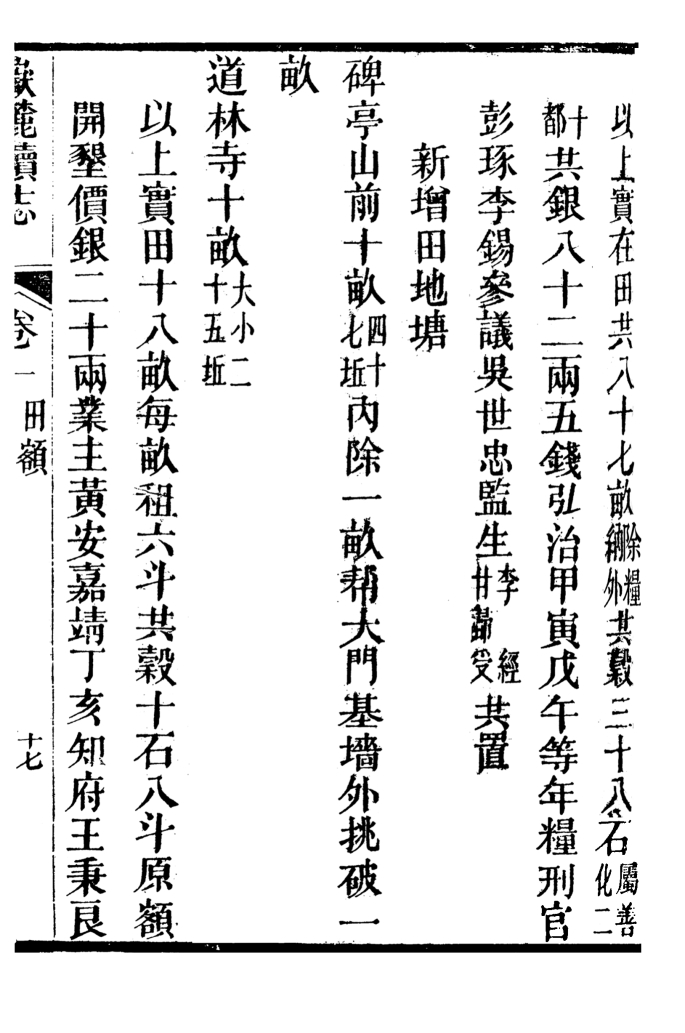 以上實在田共八十七畝除糧納外共穀三十八石屬善化二
十都共銀八十二兩五錢弘治甲寅戊午等年糧刑官
彭琢李錫參議吳世忠監生李經甘受共置
新增田地塘
碑亭山前十畝四十七坵內除一畝幇大門基墻外挑破一
畝
道林寺十畝大小二十五坵
以上實田十八畝每畝租六斗共穀十石八斗原額
開墾價銀二十兩業主黃安嘉靖丁亥知府王秉良
嶽麓續志 卷一 田額 十七